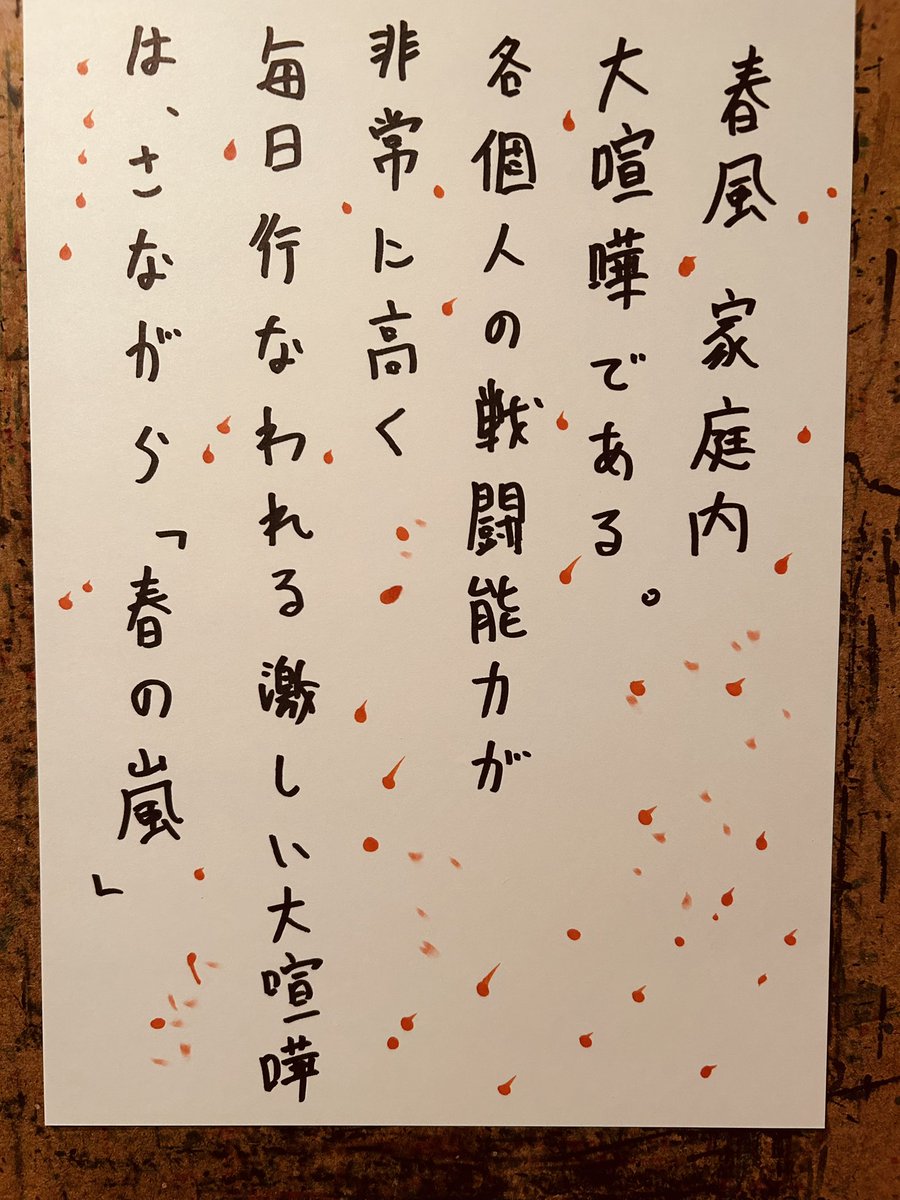 春風 家庭内
大喧嘩である。
各個人の戦闘能力が
非常に高く
毎日行なわれる激しい大喧嘩
は、さながら「春の嵐」